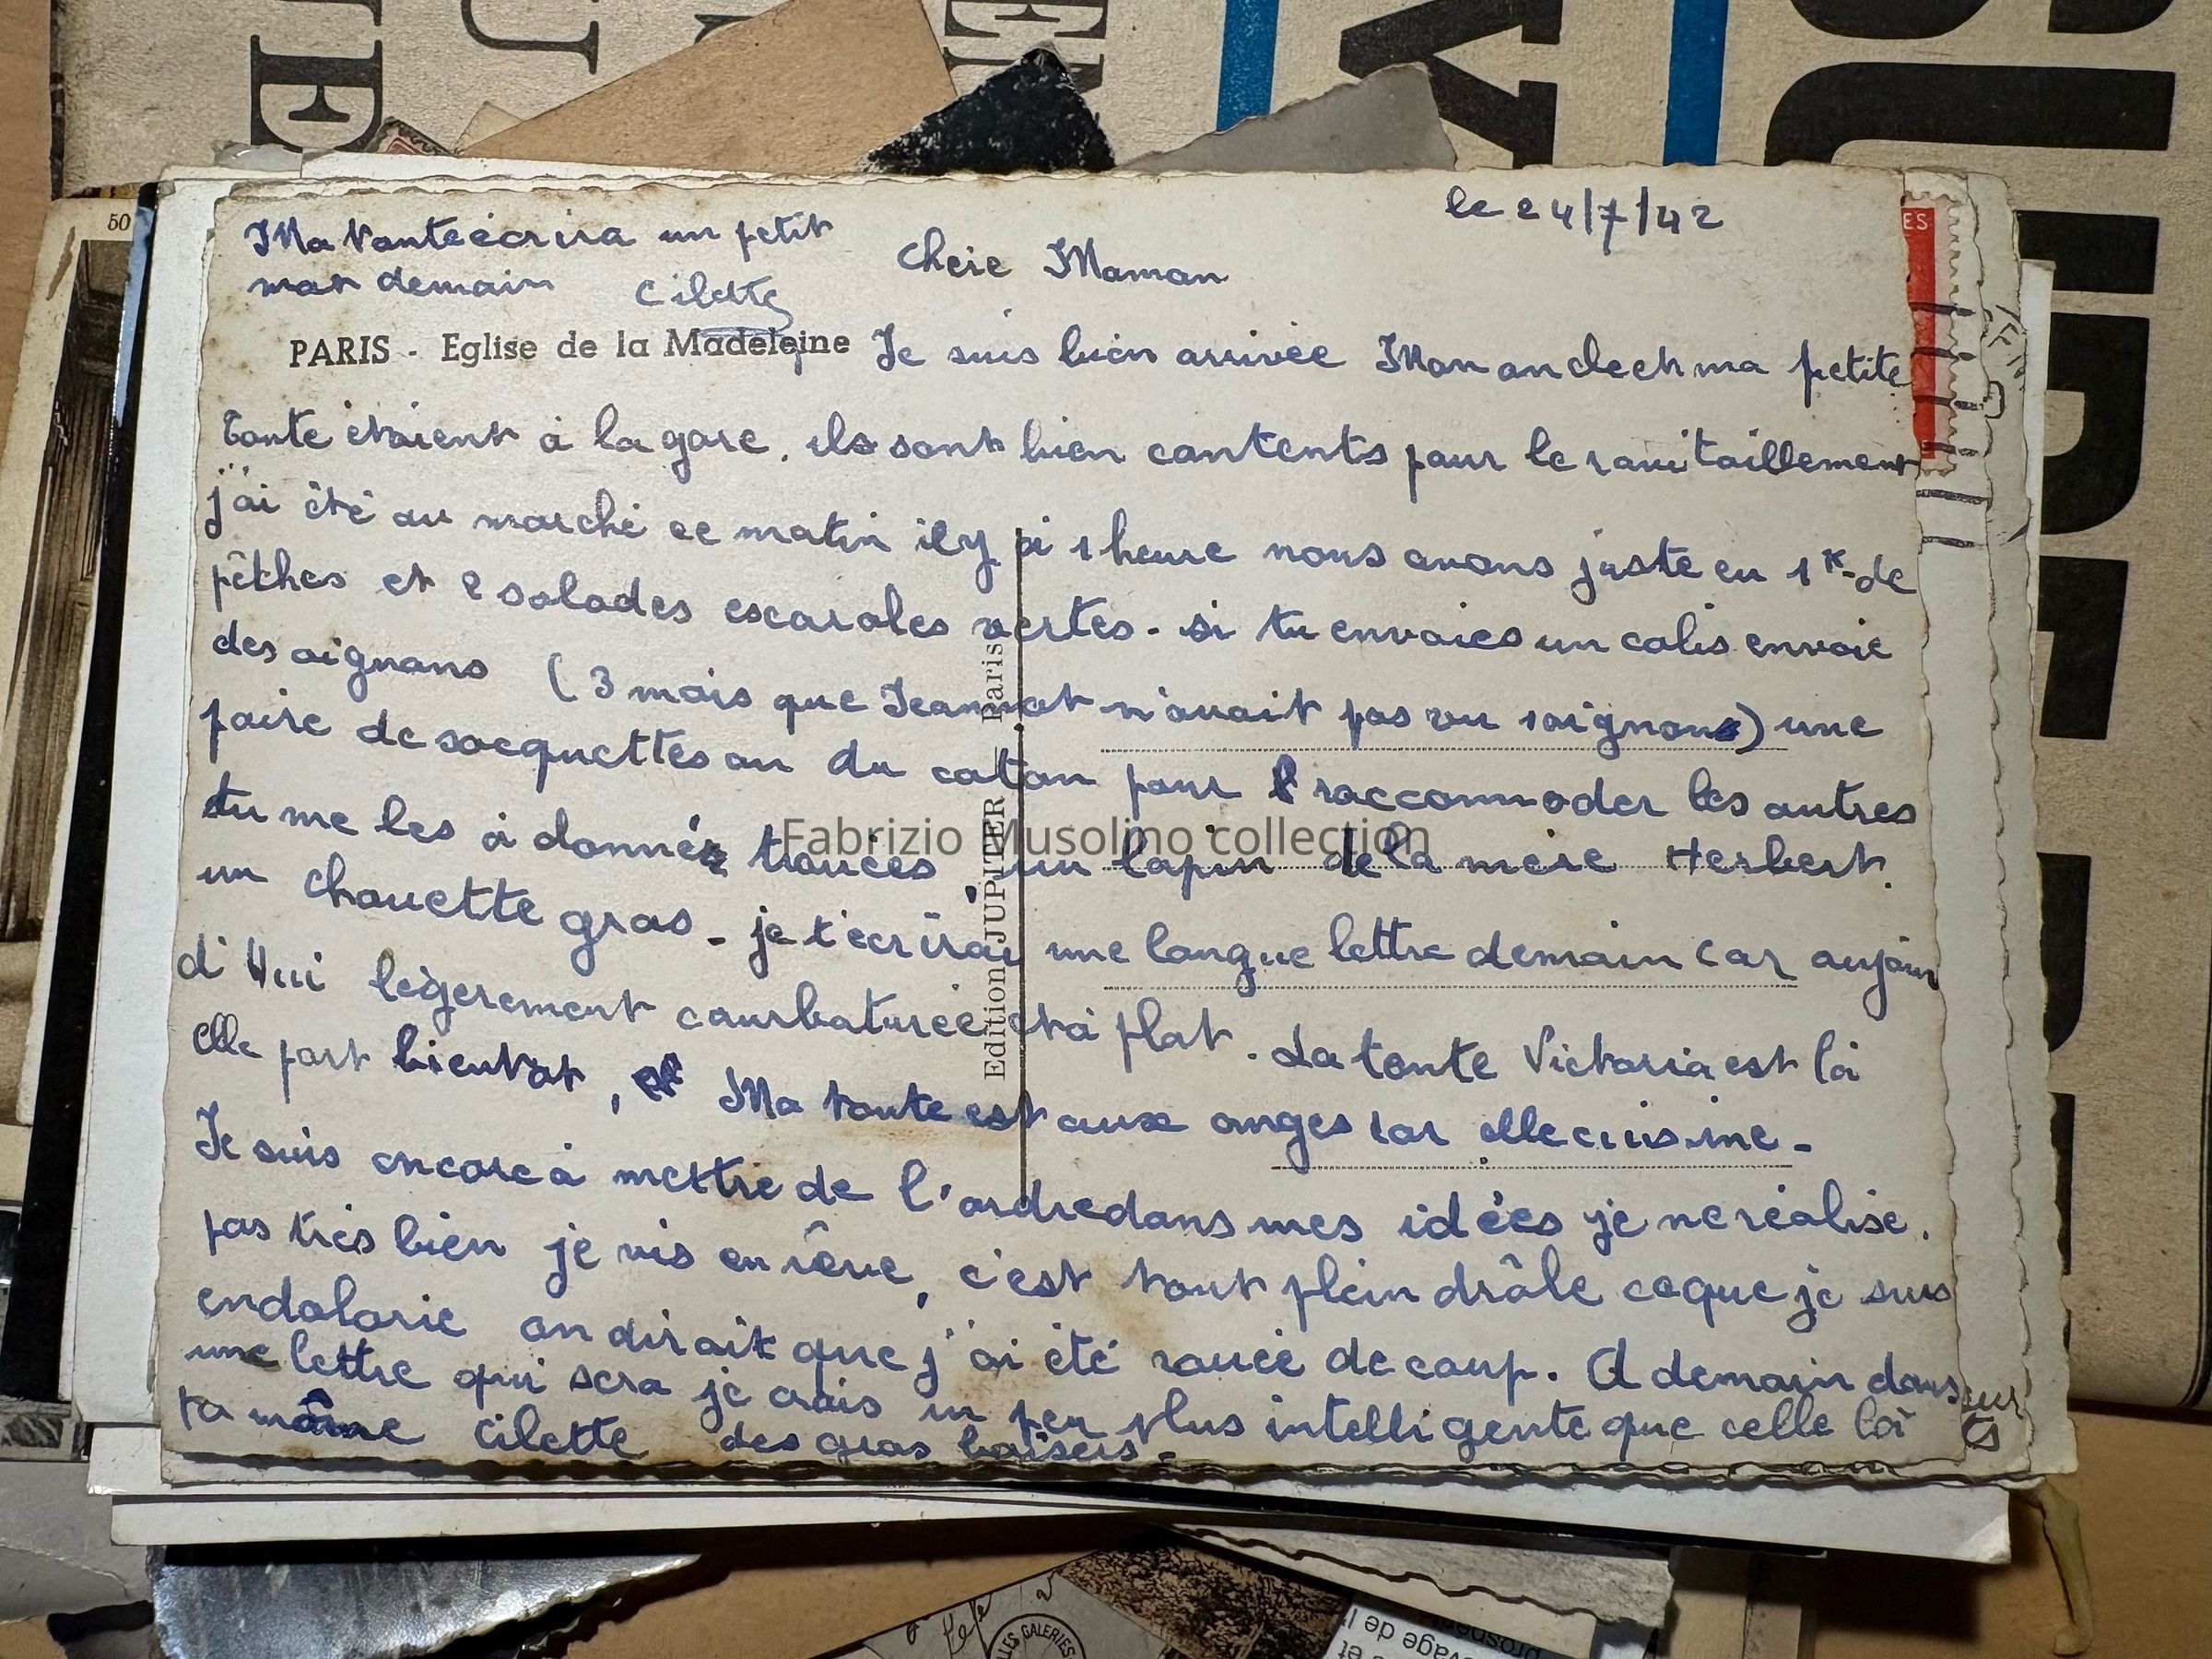 le 24/7/42
Ma tante écrira un petit
mot demain Cilette
Chere Maman
PARIS - Eglise de la Madeleine
Je suis bien arrivée Mon oncle et ma petite
tante étaient à la gare. ils sont bien contents pour le ravitaillement
j'ai été au marché ce matin il y a 1 heure nous avons juste eu 1K de
pêches et 2 salades escaroles vertes. si tu envoies un colis envoie
des oignons (3 mois que Jeannot n'avait pas vu 1 oignons) une
paire de socquettes ou du coton pour raccommoder les autres
tu me les à données trouées, un lapin de la mère Herbert.
un chouette gras - je t'écrirai une longue lettre demain car aujour
d'Hui légerement courbaturée et à plat. La tante Victoria est là
elle part bientot, et Ma tante est aux anges car elle cuisine -
Je suis encore à mettre de l'ordre dans mes idées je ne réalise.
pas très bien je vis en rêve, c'est tout plein drôle ce que je suis
endolorie on dirait que j'ai été rouée de coup. A demain dans
une lettre qui sera je crois un peu plus intelligente que celle là
ta môme Cilette des gros baisers -
Edition JUPITER - Paris
Fabrizio Musolino collection
50
ES
LES GALERIES